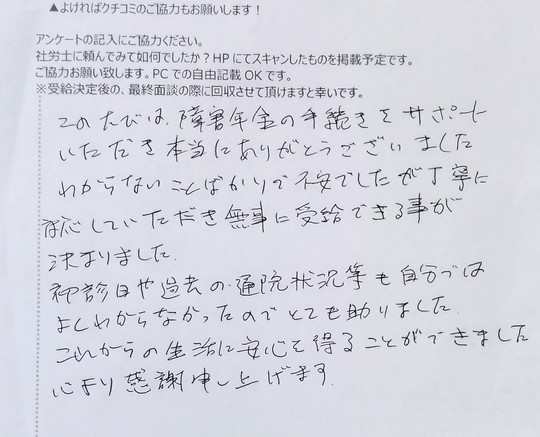 ▲よければクチコミのご協力もお願いします！
アンケートの記入にご協力ください。
社労士に頼んでみて如何でしたか？HPにてスキャンしたものを掲載予定です。
ご協力お願い致します。PCでの自由記載OKです。
※受給決定後の、最終面談の際に回収させて頂けますと幸いです。
このたびは、障害年金の手続きをサポート
いただき本当にありがとうございました
わからないことばかりで不安でしたが丁寧に
対応していただき無事に受給できる事が
決まりました.
初診日や過去の通院状況等も自分では
よくわからなかったのでとても助りました.
これからの生活に安心を得ることができました
心より感謝申し上げます.